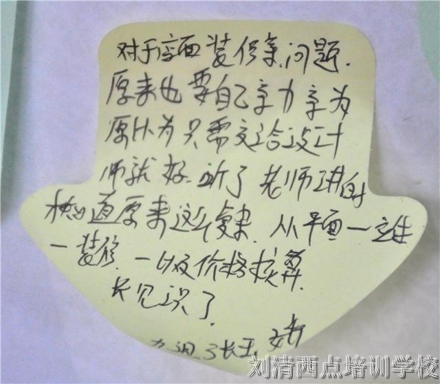 对于店面装修等问题.
原来也要自己亲力亲为
原以为只需交给设计
师就好.听了老师讲的
才知道原来这么复杂.从平面一立体
一装修.一以及价格核算.
长见识了
刘清西点培训学校